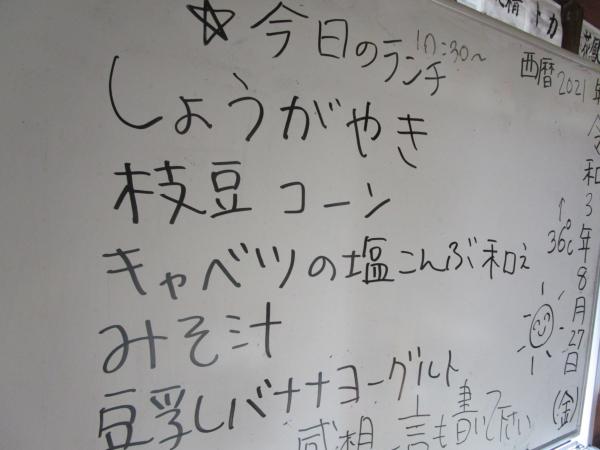 ☆今日のランチ 10:30～
しょうがやき
枝豆コーン
キャベツの塩こんぶ和え
みそ汁
豆乳しバナナヨーグルト
感想一言も書いて下さい
西暦2021年
令和3年8月27日(金)
↑36℃